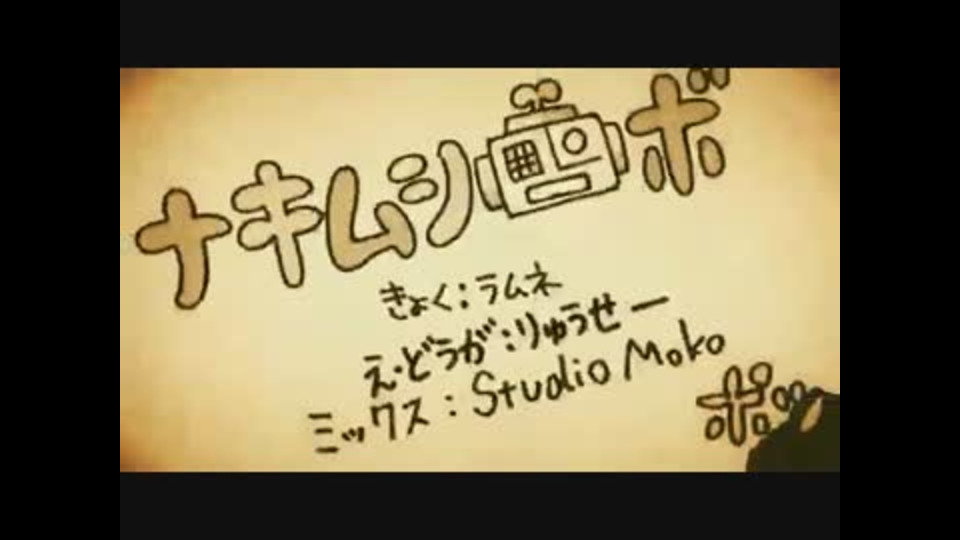 ナキムシロボ
きょく:ラムネ
え・どうが:りゅうせー
ミックス:Studio Moko
ボ